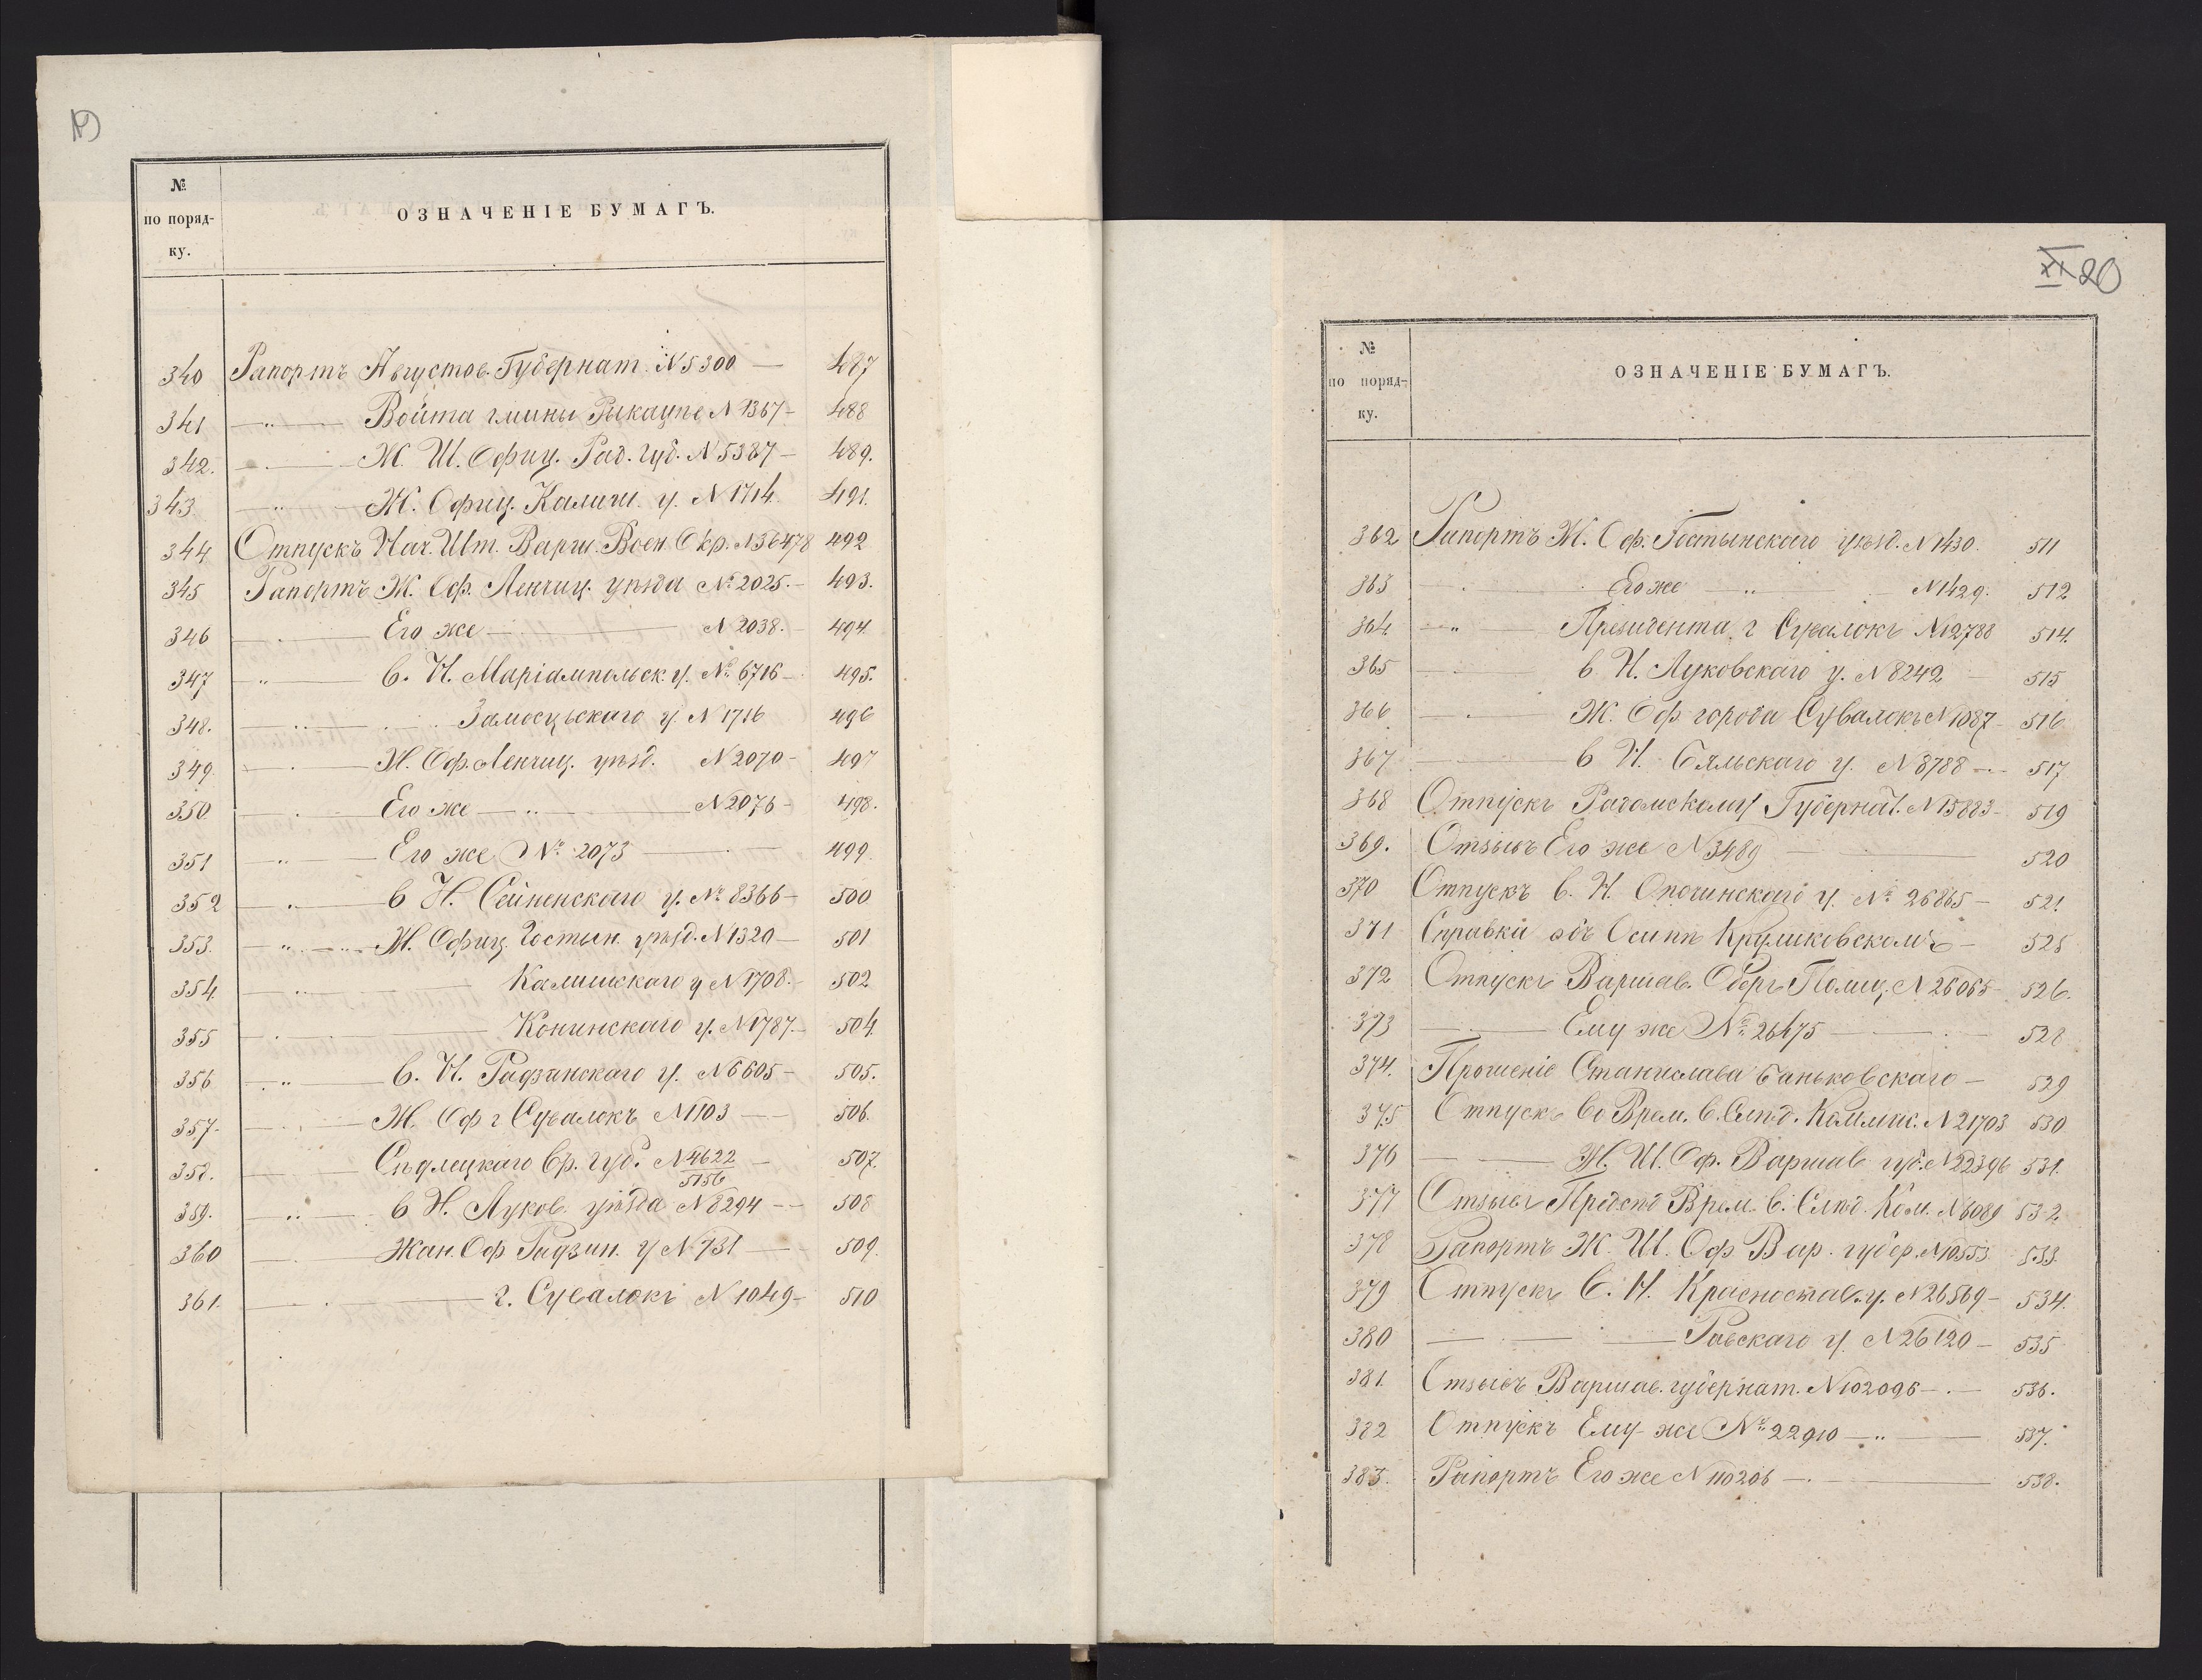 № по порядку.
ОЗНАЧЕНІЕ БУМАГЪ.
340 Рапортъ Августов. Губернат. N 5300 — 487
341 —„— Войта гмины N 1367 – 488
342. — Ж. Ш. Офиц. Рад. губ. N 5387 – 489.
343 —„— Ж. Офиц. Калиш. у. N 1714. 491.
344 Отпускъ Нач. Шт. Варш. Воен. Окр. N 36478 492
345 Рапортъ Ж. Оф. Ленчиц. уѣзда № 2025. – 493.
346 — Его же — N 2038. – 494
347 —„— В. Н. Маріампольск. у. № 6716 – 495.
348. —„— Замосцьскаго у. N 1716 496
349. — Ж. Оф. Ленчиц. уѣзд. N 2070 – 497
350 — Его же —„— N 2076 – 498.
351 —„— Его же № 2073 — 499.
352 —„— В Н. Сейненскаго у. № 8366 – 500
353. —„—„— Ж. Офиц. Гостын. уѣзд. N 1320 — 501
354. —„— Калишскаго у N 1708. – 502
355 — Конинскаго у. N 1787. – 504
356 —„— В. Н. Радзинскаго у. N 6605 – 505.
357. — Ж. Оф г Сувалокъ N 1103 — 506.
358. — Сѣдлецкаго Вр. Губ. N 4622/5156 – 507.
359. —„— В Н. Луков. уѣзда N 8294 – – 508
360 — Жан. Оф Радзин. у N 731 — 509.
361. — г. Сувалокъ N 1049 – 510
XI 20
№ по порядку.
ОЗНАЧЕНІЕ БУМАГЪ.
362 Рапортъ Ж. Оф. Гостынскаго уѣзд. N 1430. 511
363 — Его же —„— N 1429. 512
364. —„— Президента г Сувалокъ N 12788 514.
365 — В. Н. Луковскаго у. N 8242 – 515
366 — Ж. Оф города Сувалокъ N 1087 – 516
367 — В Н. Бяльскаго у. N 8788 — 517
368 Отпускъ Радомскому Губернат. N 15883 – 519
369. Отзывъ Его же N 3489 — 520
370 Отпускъ В. Н. Опочинскаго у. № 26865 – 521.
371 Справки объ Осипѣ – 525
372 Отпускъ Варшав. Оберъ Полиц. N 26065 – 526.
373 — Ему же № 26475 — 528
374. Прошеніе Станислава Баньковскаго – 529
375 Отпускъ Во Врем. В. Слѣд. Коммис. N 21703 530
376 — Ж. Ш. Оф. Варшав губ. N 22396 531.
377 Отзывъ Предсѣд Врем. В. Слѣд. Ком. N 6089 532.
378 Рапортъ Ж. Ш. Оф. Вар. губер. N 10553 533.
379 Отпускъ В. Н. Красностав. у. N 26569 – 534.
380 — Равскаго у. N 26120 – 535
381. Отзывъ Варшав. губернат. N 102096 –.– 536.
382 Отпускъ Ему же № 22910 –„— 537.
383. Рапортъ Его же N 110206 –.— 538.